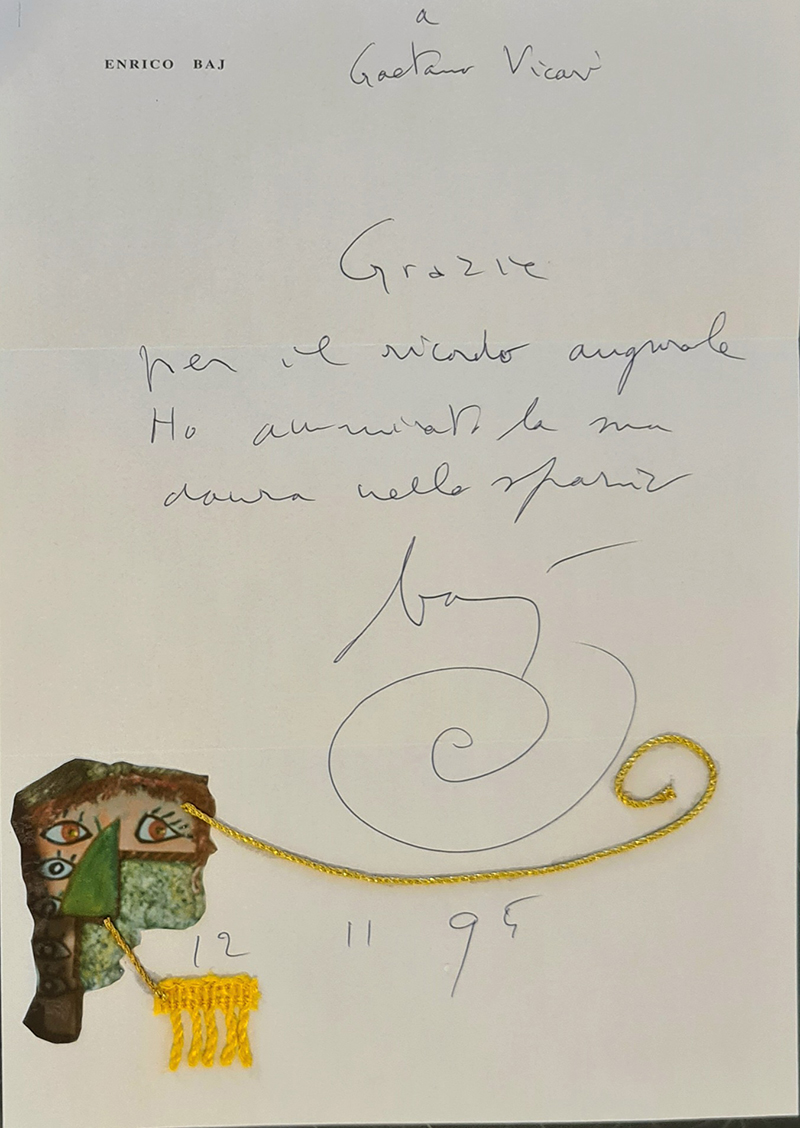 a
ENRICO BAJ
Gaetano Vicari
Grazie
per il ricordo augurale
Ho ammirato la sua
danza nello spazio
baj
12 11 95